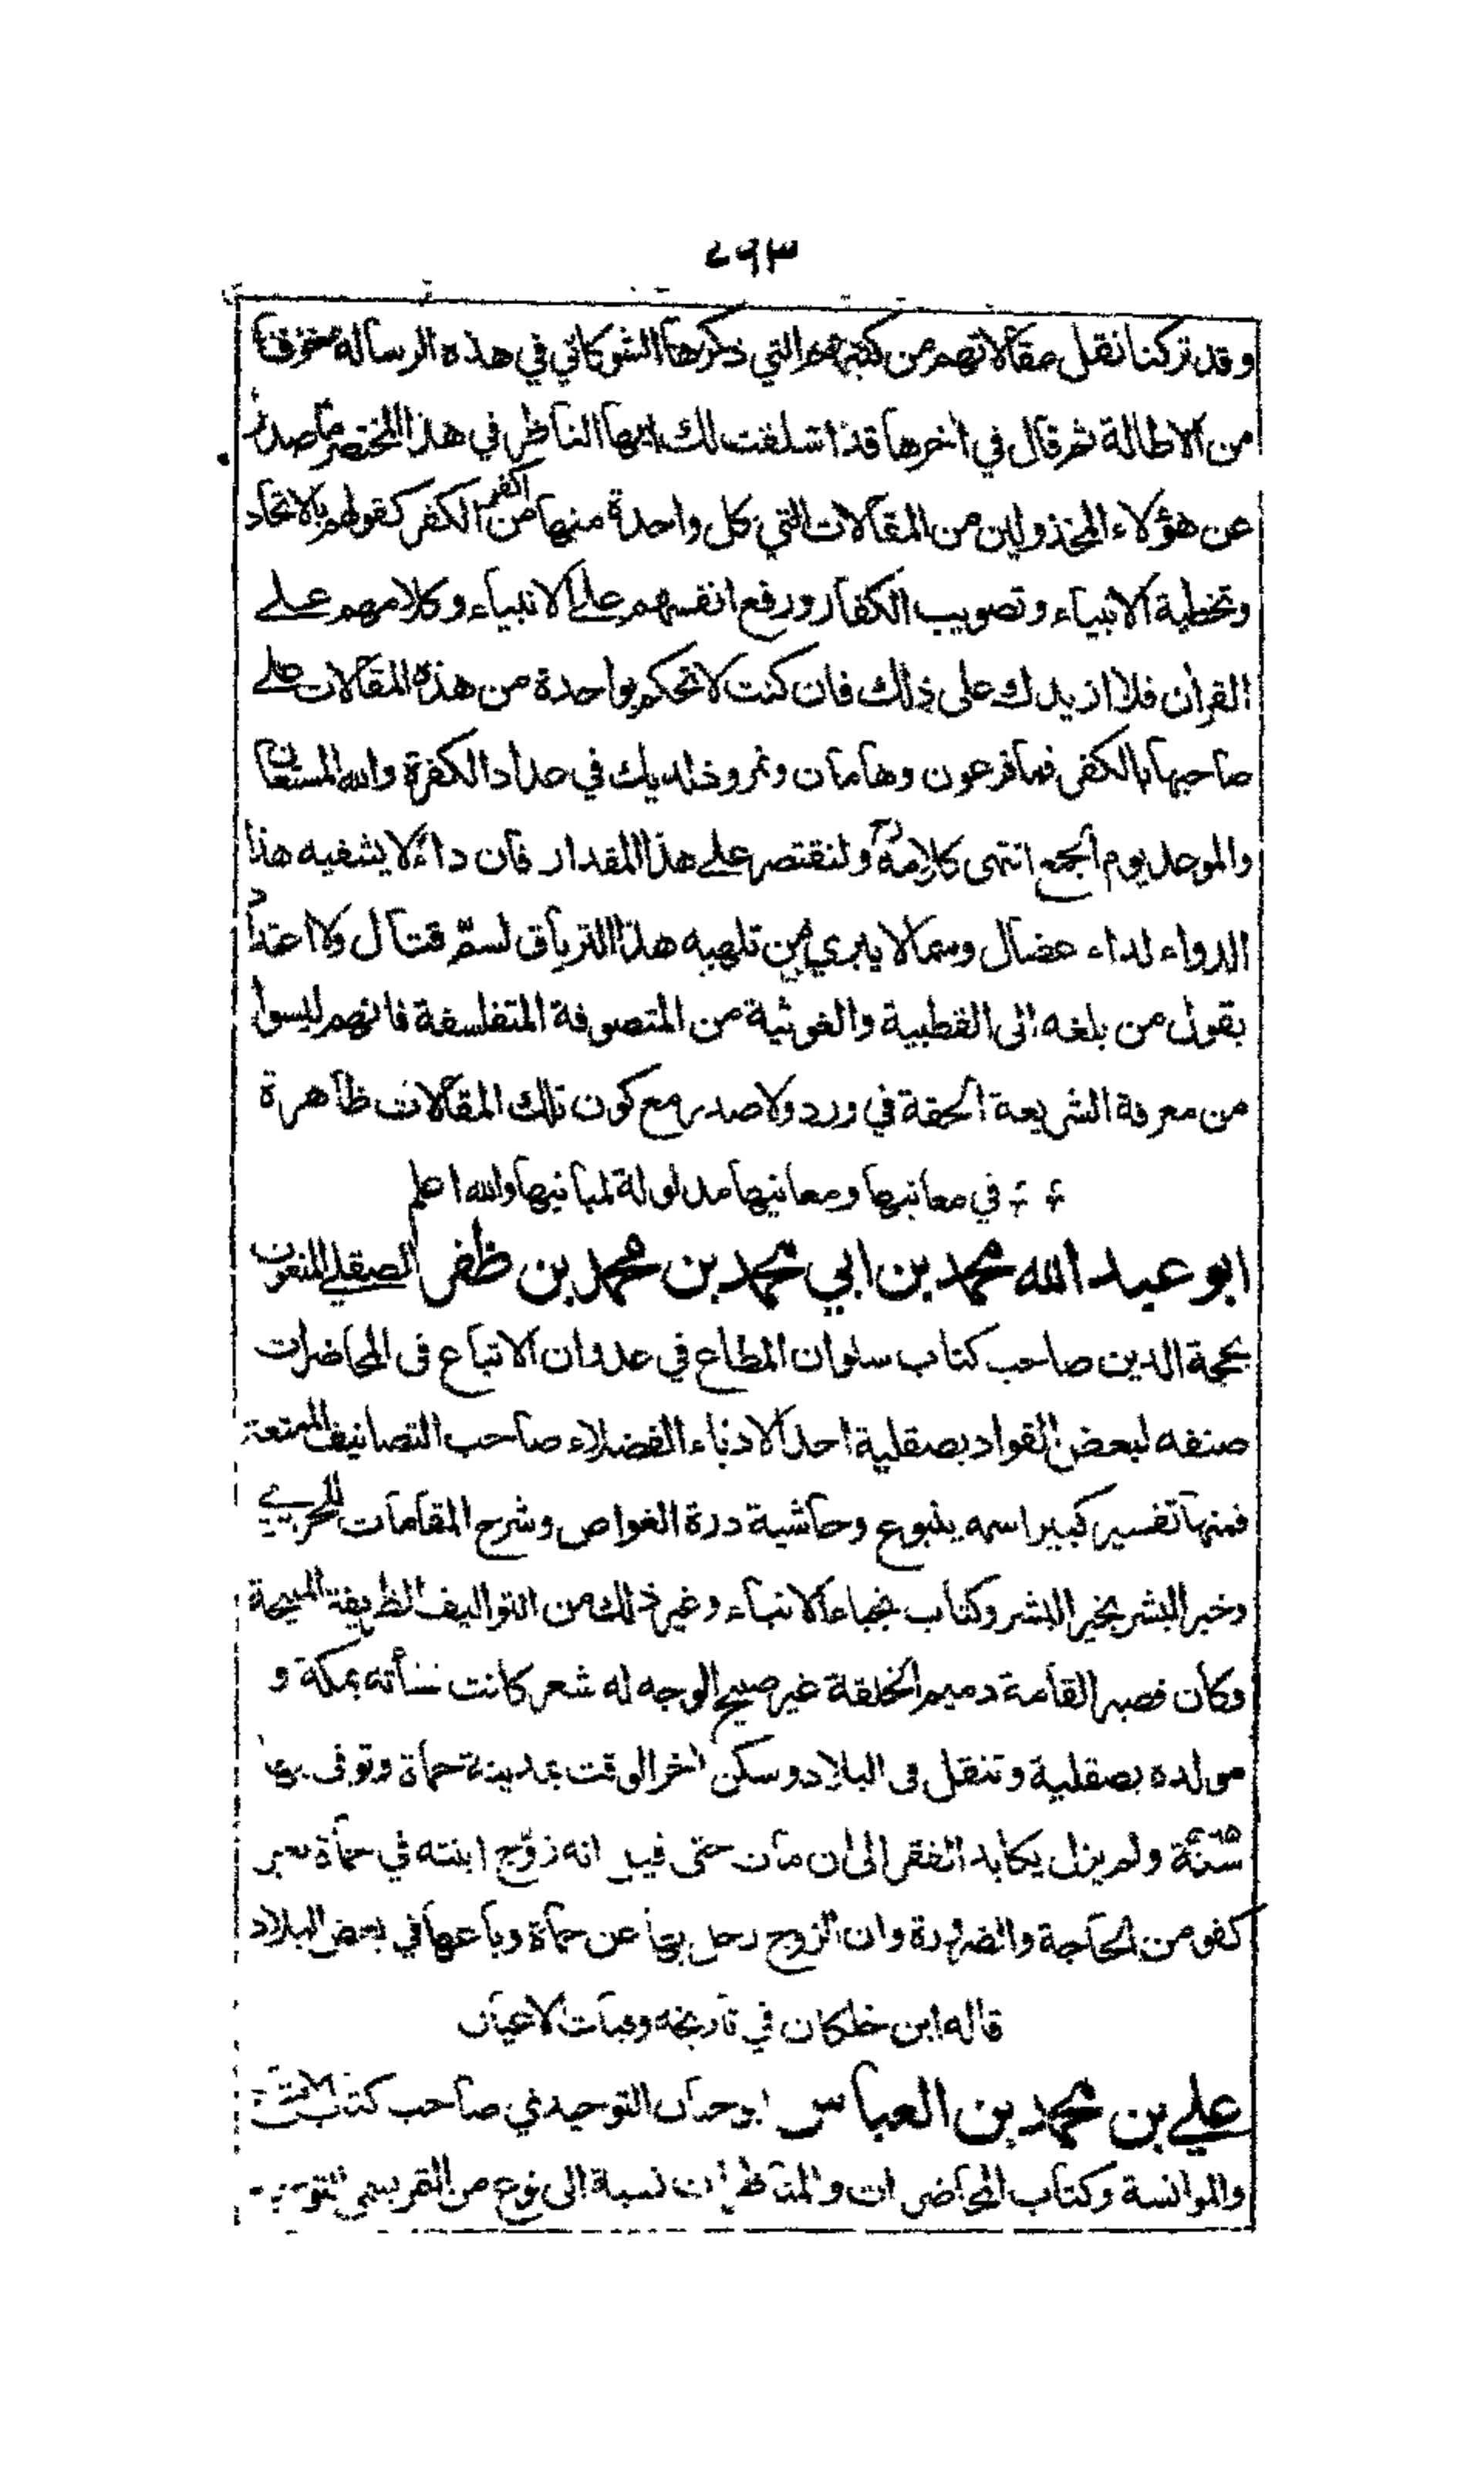 ٧٩٣
وقد تركنا نقل مقالاتهم من كتبهم التي ذكرها الشوكاني في هذه الرسالة خوفا
من الاطالة ثم قال في اخرها قد اسلفت لك ايها الناظر في هذا المختصر ما صدر
عن هؤلاء المخذولين من المقالات التي كل واحدة منها من اكفر الكفر كقولهم بالاتحاد
وتخطية الانبياء وتصويب الكفار ورفع انفسهم على الانبياء وكلامهم على
القران فلا ازيدك على ذلك فان كنت لا تحكم بواحدة من هذه المقالات على
صاحبها بالكفر فما فرعون وهامان ونمروذ لديك في عداد الكفرة والله المستعان
والموعد يوم الجمع انتهى كلامه ولنقتصر على هذا المقدار فان داء لا يشفيه هذا
الدواء لداء عضال وسما لا يبري من تلهبه هذا الترياق لسم قتال ولا اعتداد
بقول من بلغه الى القطبية والغوثية من المتصوفة المتفلسفة فانهم ليسوا
من معرفة الشريعة الحقة في ورد ولا صدر مع كون تلك المقالات ظاهرة
في معانيها ومعانيها مدلولة لمبانيها والله اعلم
ابو عبد الله محمد بن ابي محمد بن محمد بن ظفر الصقلي المنعوت
بحجة الدين صاحب كتاب سلوان المطاع في عدوان الاتباع فى المحاضرات
صنفه لبعض القواد بصقلية احد الادباء الفضلاء صاحب التصانيف الممتعة
فمنها تفسير كبير اسمه ينبوع وحاشية درة الغواص وشرح المقامات للحريري
وخير البشر بخير البشر وكتاب نجباء الانباء وغير ذلك من التواليف الظريفة المليحة
وكان قصير القامة دميم الخلقة غير صبيح الوجه له شعر كانت نشأته بمكة و
مولده بصقلية وتنقل فى البلاد وسكن اخر الوقت بمدينة حماة وتوفى بها
سنة ولم يزل يكابد الفقر الى ان مات حتى قيل انه زوّج ابنته في حماة بغير
كفو من الحاجة والضرورة وان الزوج رحل بها عن حماة وباعها في بعض البلاد
قاله ابن خلكان في تاريخه وفيات الاعيان
علي بن محمد بن العباس ابو حيان التوحيدي صاحب كتاب الامتاع
والموانسة وكتاب المحاضرات والمناظرات نسبة الى نوع من التمر يسمى التوحيد